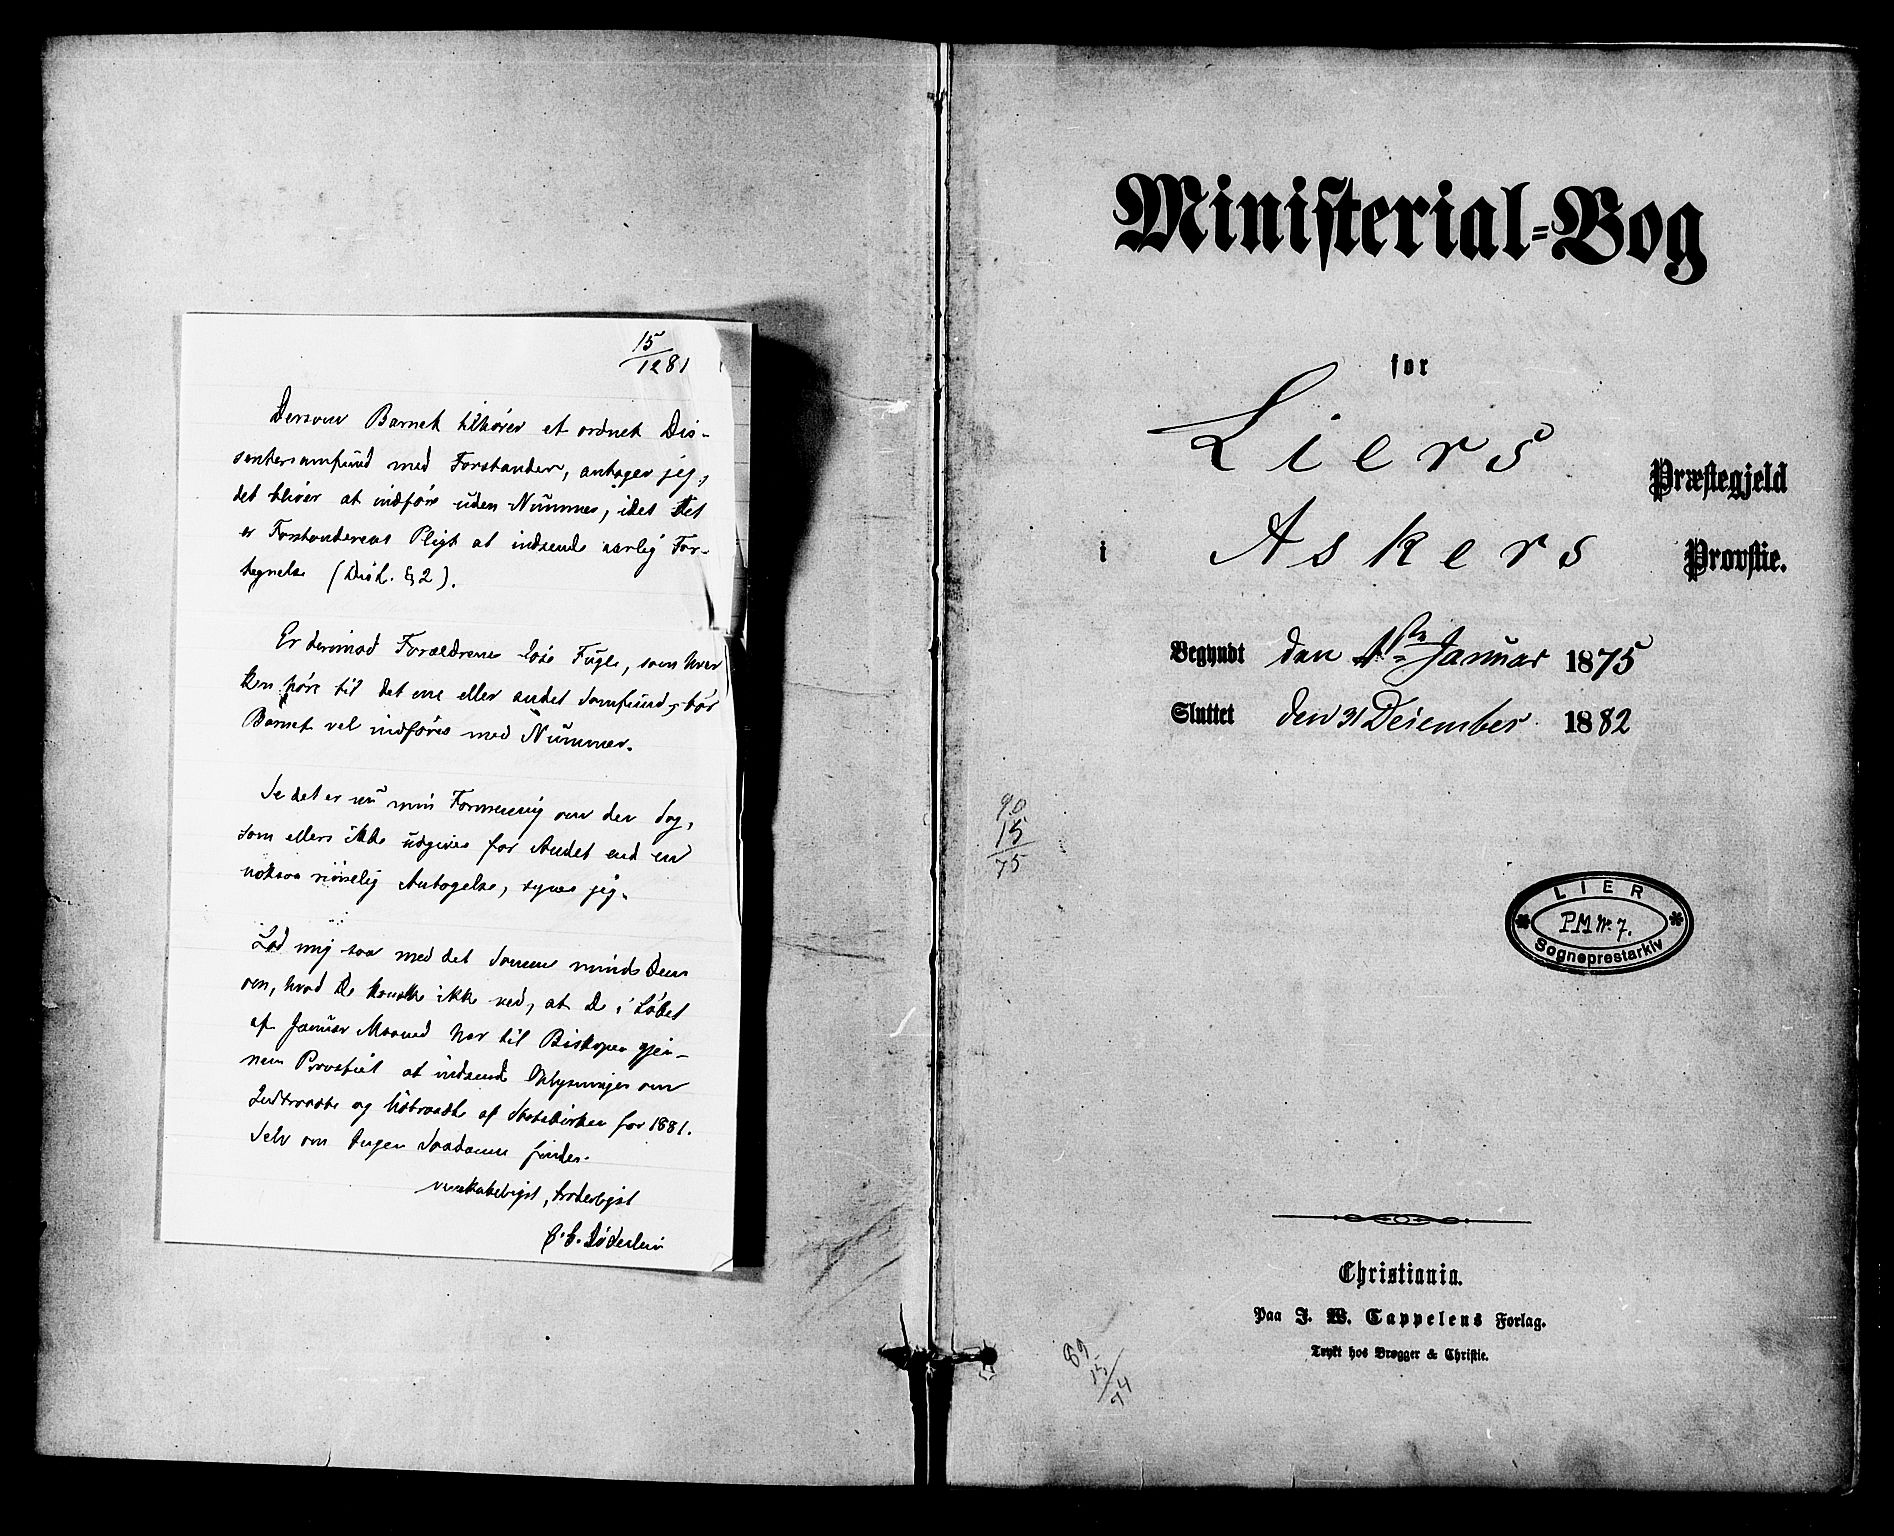 15/12 81
Dersom Barnet tilhører et ordnet Dis-
sentersamfund med Forstander, antager jeg,
det bliver at indføre uden Nummer, idet det
er Forstanderens Pligt at indsende aarlig For-
tegnelse (Disl. § 2).
Er derimod Forældrene løse Fugle, som hver
ken høre til det ene eller andet Samfund, bør
Barnet vel indføres med Nummer.
Se det er nu min Formening om den Sag,
som ellers ikke udgives for Andet end en
noksaa rimelig Antagelse, synes jeg.
Lad mig saa med det Samme minde Dem
om, hvad De kanske ikke ved, at De i Løbet
af Januar Maaned har til Biskopen gjen-
nem Provstiet at indsende Oplysninger om
Indtraadte og Udtraadte af Statskirken for 1881.
Selv om Ingen Saadanne findes.
venskabeligst, broderligst
Døderlein
Ministerial-Bog
for
Liers Præstegjeld
i Askers Provstie.
Begyndt den 1ste Januar 1875
Sluttet den 31 December 1882
90
15
75
LIER
PM № 7.
Sogneprestarkiv
Christiania.
Paa J. W. Cappelens Forlag.
Trykt hos Brøgger & Christie.
89
15
74